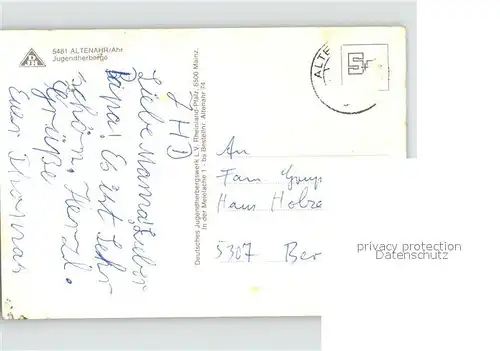 5481 ALTENAHR/Ahr
Jugendherberge
LHD
Liebe Mama, Lieber
Papa! Es ist sehr
schön. Herzl.
Grüße
Euer Thomas
Deutsches Jugendherbergswerk L.V. Rheinland-Pfalz, 6500 Mainz,
In der Meielache 1 - bs Bestellnr. Altenahr 74
ALTE
An
Fam
Haus
5307 Ber
privacy protection
Datenschutz